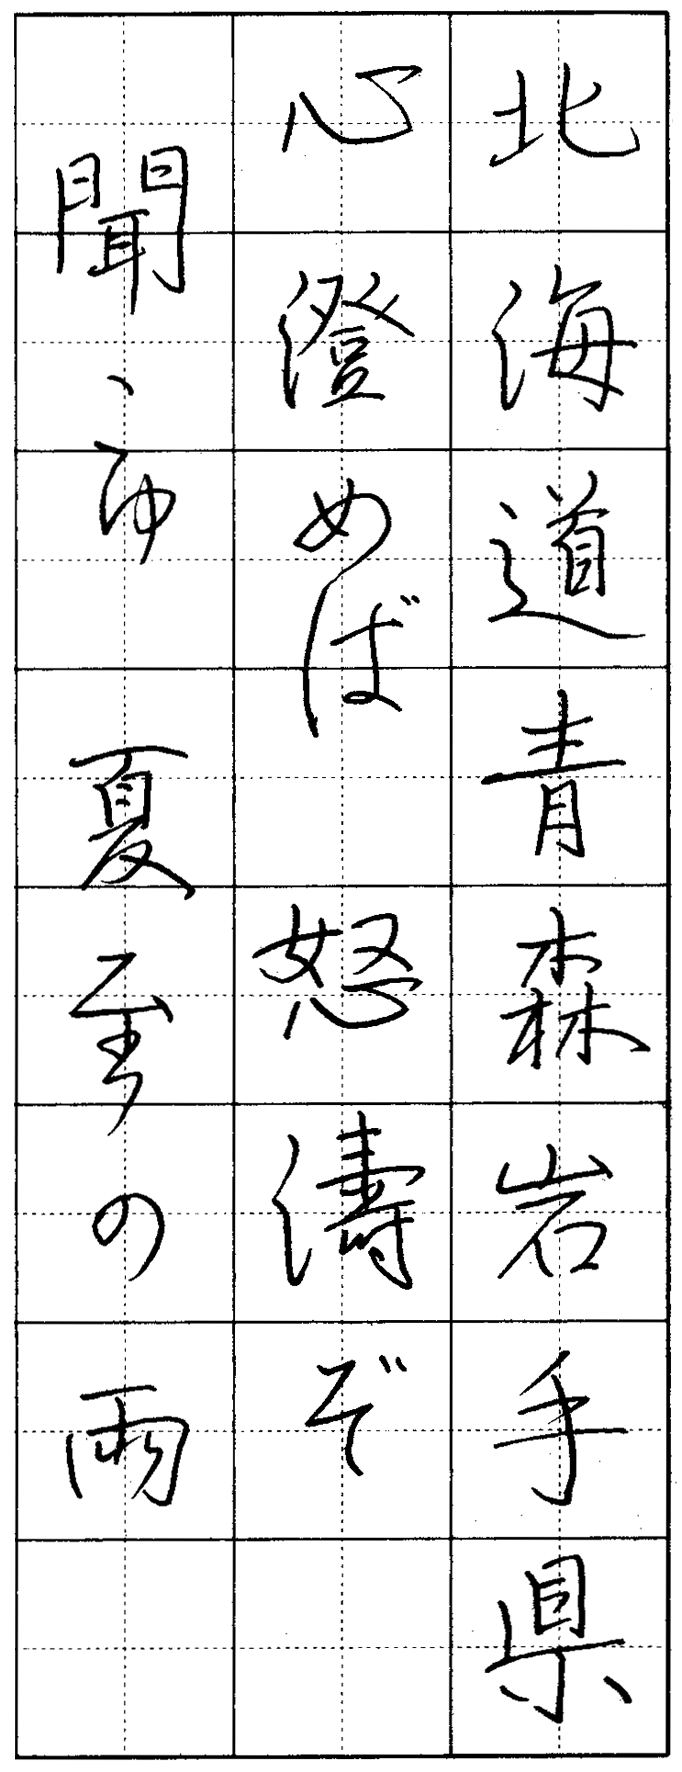 北海道青森岩手県
心澄めば怒濤ぞ
聞ゝゆ夏至の雨